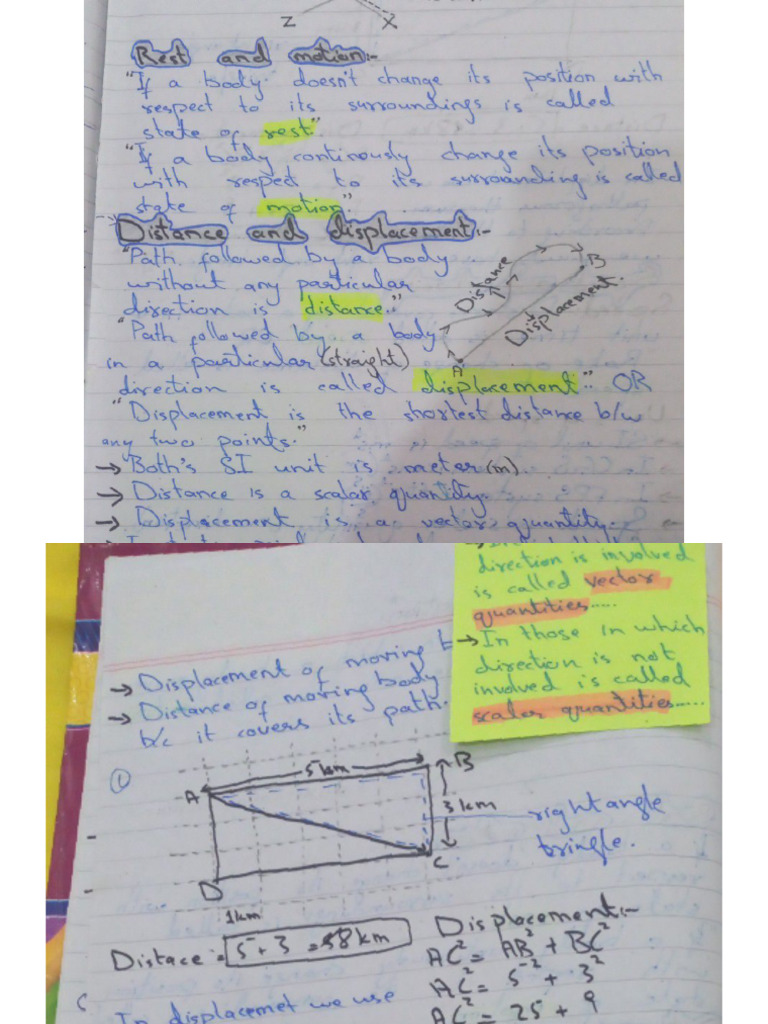 Z X
Rest and motion:-
"If a body doesn't change its position with
respect to its surroundings is called
state of rest"
"If a body continously change its position
with respect to its surrounding is called
state of motion"
Distance and displacement:-
"Path followed by a body
without any particular
direction is distance."
"Path followed by a body
in a particular (straight)
direction is called displacement" OR
Distance
Displacement.
A
B
"Displacement is the shortest distance b/w
any two points."
→ Both's SI unit is meter (m)
→ Distance is a scalar quantity.
→ Displacement is a vector quantity.
direction is involved
is called vector
quantities.....
→ In those in which
direction is not
involved is called
scalar quantities.....
→ Displacement of moving b
→ Distance of moving body
b/c it covers its path.
①
A 5km B
3km
C
D
1km
right angle
tringle.
Distace = 5+3 = 8km
Displacement:-
AC² = AB² + BC²
AC² = 5² + 3²
AC² = 25 + 9
In displacemet we use